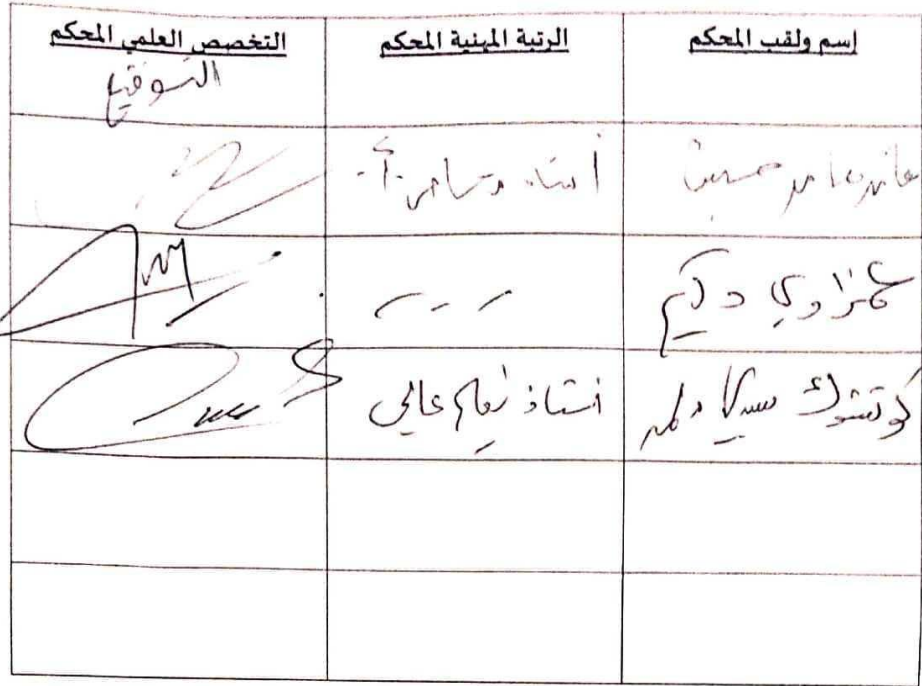 إسم ولقب المحكم
الرتبة المهنية المحكم
التخصص العلمي المحكم
التوقيع
أستاذ محاضر أ
حمزاوي حكيم
كوتشوك سيدي محمد
أستاذ تعليم عالي